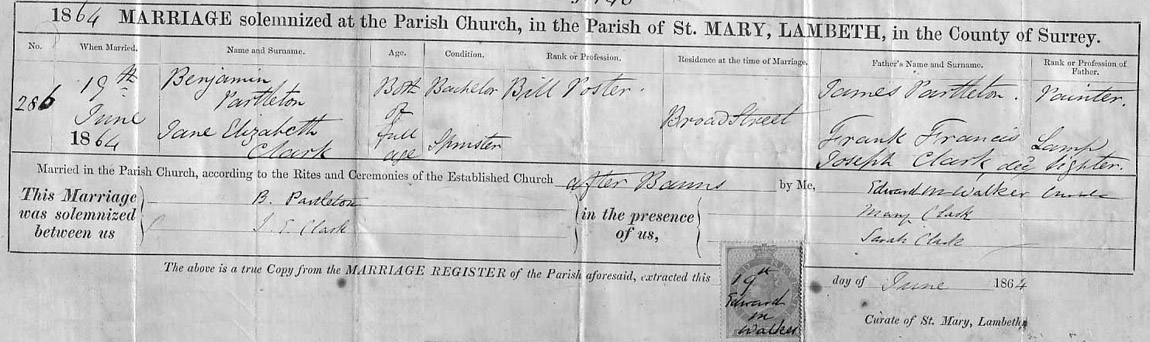 1864 MARRIAGE solemnized at the Parish Church, in the Parish of St. MARY, LAMBETH, in the County of Surrey.
No. When Married. Name and Surname. Age. Condition. Rank or Profession. Residence at the time of Marriage. Father's Name and Surname. Rank or Profession of Father.
286 19th June 1864 Benjamin Partleton Both of full age Bachelor Bill Poster. Broad Street James Partleton. Painter.
Jane Elizabeth Clark Spinster Frank Francis Joseph Clark, dec Lamp Lighter.
Married in the Parish Church, according to the Rites and Ceremonies of the Established Church after Banns by Me, Edward M Walker Curate
This Marriage was solemnized between us B. Partleton J. E Clark in the presence of us, Mary Clark Sarah Clark
The above is a true Copy from the MARRIAGE REGISTER of the Parish aforesaid, extracted this 19th day of June 1864
Edward M Walker
Curate of St. Mary, Lambeth,